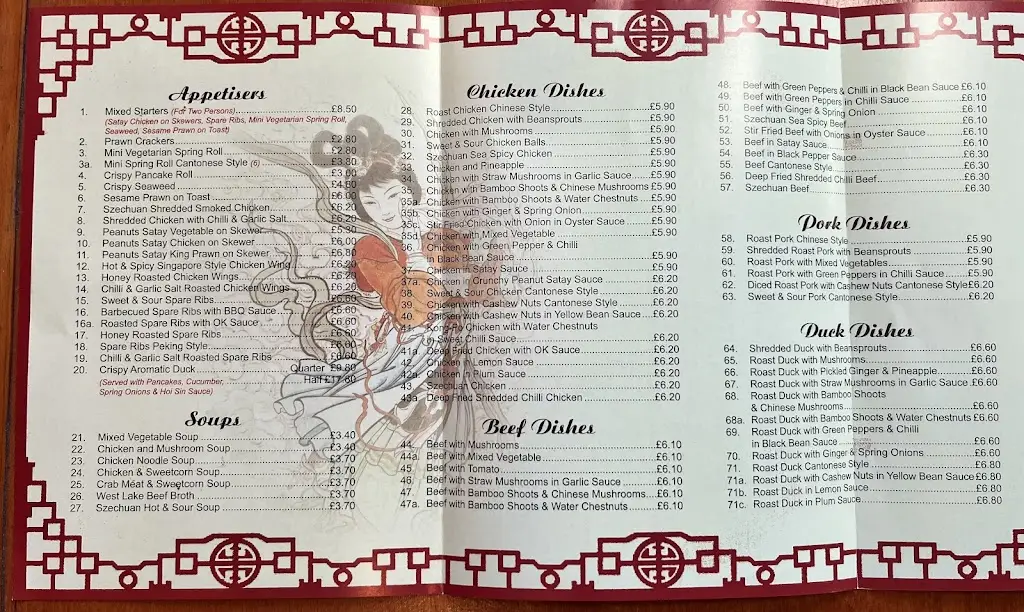 Appetisers
1. Mixed Starters (For Two Persons) £8.50
(Satay Chicken on Skewers, Spare Ribs, Mini Vegetarian Spring Roll,
Seaweed, Sesame Prawn on Toast)
2. Prawn Crackers £2.80
3. Mini Vegetarian Spring Roll £2.80
3a. Mini Spring Roll Cantonese Style (6) £3.80
4. Crispy Pancake Roll £3.00
5. Crispy Seaweed £4.80
6. Sesame Prawn on Toast £6.00
7. Szechuan Shredded Smoked Chicken £6.20
8. Shredded Chicken with Chilli & Garlic Salt £6.20
9. Peanuts Satay Vegetable on Skewer £5.30
10. Peanuts Satay Chicken on Skewer £6.00
11. Peanuts Satay King Prawn on Skewer £6.80
12. Hot & Spicy Singapore Style Chicken Wing £6.20
13. Honey Roasted Chicken Wings £6.20
14. Chilli & Garlic Salt Roasted Chicken Wings £6.20
15. Sweet & Sour Spare Ribs £6.60
16. Barbecued Spare Ribs with BBQ Sauce £6.60
16a. Roasted Spare Ribs with OK Sauce £6.60
17. Honey Roasted Spare Ribs £6.00
18. Spare Ribs Peking Style £6.60
19. Chilli & Garlic Salt Roasted Spare Ribs £6.60
20. Crispy Aromatic Duck Quarter £9.80
(Served with Pancakes, Cucumber, Half £17.80
Spring Onions & Hoi Sin Sauce)
Soups
21. Mixed Vegetable Soup £3.40
22. Chicken and Mushroom Soup £3.40
23. Chicken Noodle Soup £3.70
24. Chicken & Sweetcorn Soup £3.70
25. Crab Meat & Sweetcorn Soup £3.70
26. West Lake Beef Broth £3.70
27. Szechuan Hot & Sour Soup £3.70
Chicken Dishes
28. Roast Chicken Chinese Style £5.90
29. Shredded Chicken with Beansprouts £5.90
30. Chicken with Mushrooms £5.90
31. Sweet & Sour Chicken Balls £5.90
32. Szechuan Sea Spicy Chicken £5.90
33. Chicken and Pineapple £5.90
34. Chicken with Straw Mushrooms in Garlic Sauce £5.90
35. Chicken with Bamboo Shoots & Chinese Mushrooms £5.90
35a. Chicken with Bamboo Shoots & Water Chestnuts £5.90
35b. Chicken with Ginger & Spring Onion £5.90
35c. Stir Fried Chicken with Onion in Oyster Sauce £5.90
35d. Chicken with Mixed Vegetable £5.90
36. Chicken with Green Pepper & Chilli
in Black Bean Sauce £5.90
37. Chicken in Satay Sauce £5.90
37a. Chicken in Crunchy Peanut Satay Sauce £6.20
38. Sweet & Sour Chicken Cantonese Style £6.20
39. Chicken with Cashew Nuts Cantonese Style £6.20
40. Chicken with Cashew Nuts in Yellow Bean Sauce £6.20
41. Kong Po Chicken with Water Chestnuts
in Sweet Chilli Sauce £6.20
41a. Deep Fried Chicken with OK Sauce £6.20
42. Chicken in Lemon Sauce £6.20
42a. Chicken in Plum Sauce £6.20
43. Szechuan Chicken £6.20
43a. Deep Fried Shredded Chilli Chicken £6.20
Beef Dishes
44. Beef with Mushrooms £6.10
44a. Beef with Mixed Vegetable £6.10
45. Beef with Tomato £6.10
46. Beef with Straw Mushrooms in Garlic Sauce £6.10
47. Beef with Bamboo Shoots & Chinese Mushrooms £6.10
47a. Beef with Bamboo Shoots & Water Chestnuts £6.10
48. Beef with Green Peppers & Chilli in Black Bean Sauce £6.10
49. Beef with Green Peppers in Chilli Sauce £6.10
50. Beef with Ginger & Spring Onion £6.10
51. Szechuan Sea Spicy Beef £6.10
52. Stir Fried Beef with Onions in Oyster Sauce £6.10
53. Beef in Satay Sauce £6.10
54. Beef in Black Pepper Sauce £6.30
55. Beef Cantonese Style £6.30
56. Deep Fried Shredded Chilli Beef £6.30
57. Szechuan Beef £6.30
Pork Dishes
58. Roast Pork Chinese Style £5.90
59. Shredded Roast Pork with Beansprouts £5.90
60. Roast Pork with Mixed Vegetables £5.90
61. Roast Pork with Green Peppers in Chilli Sauce £5.90
62. Diced Roast Pork with Cashew Nuts Cantonese Style £6.20
63. Sweet & Sour Pork Cantonese Style £6.20
Duck Dishes
64. Shredded Duck with Beansprouts £6.60
65. Roast Duck with Mushrooms £6.60
66. Roast Duck with Pickled Ginger & Pineapple £6.60
67. Roast Duck with Straw Mushrooms in Garlic Sauce £6.60
68. Roast Duck with Bamboo Shoots
& Chinese Mushrooms £6.60
68a. Roast Duck with Bamboo Shoots & Water Chestnuts £6.60
69. Roast Duck with Green Peppers & Chilli
in Black Bean Sauce £6.60
70. Roast Duck with Ginger & Spring Onions £6.60
71. Roast Duck Cantonese Style £6.80
71a. Roast Duck with Cashew Nuts in Yellow Bean Sauce £6.80
71b. Roast Duck in Lemon Sauce £6.80
71c. Roast Duck in Plum Sauce £6.80